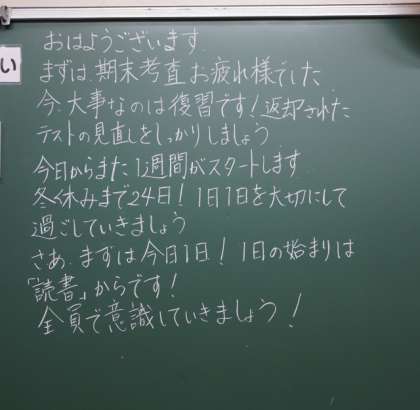 おはようございます.
まずは.期末考査お疲れ様でした
今.大事なのは復習です!返却された
テストの見直しをしっかりしましょう
い
今日からまた1週間がスタートします
冬休みまで24日!1日1日を大切にして
過ごしていきましょう
さあ.まずは今日1日!1日の始まりは
「読書」からです!
全員で意識していきましょう!